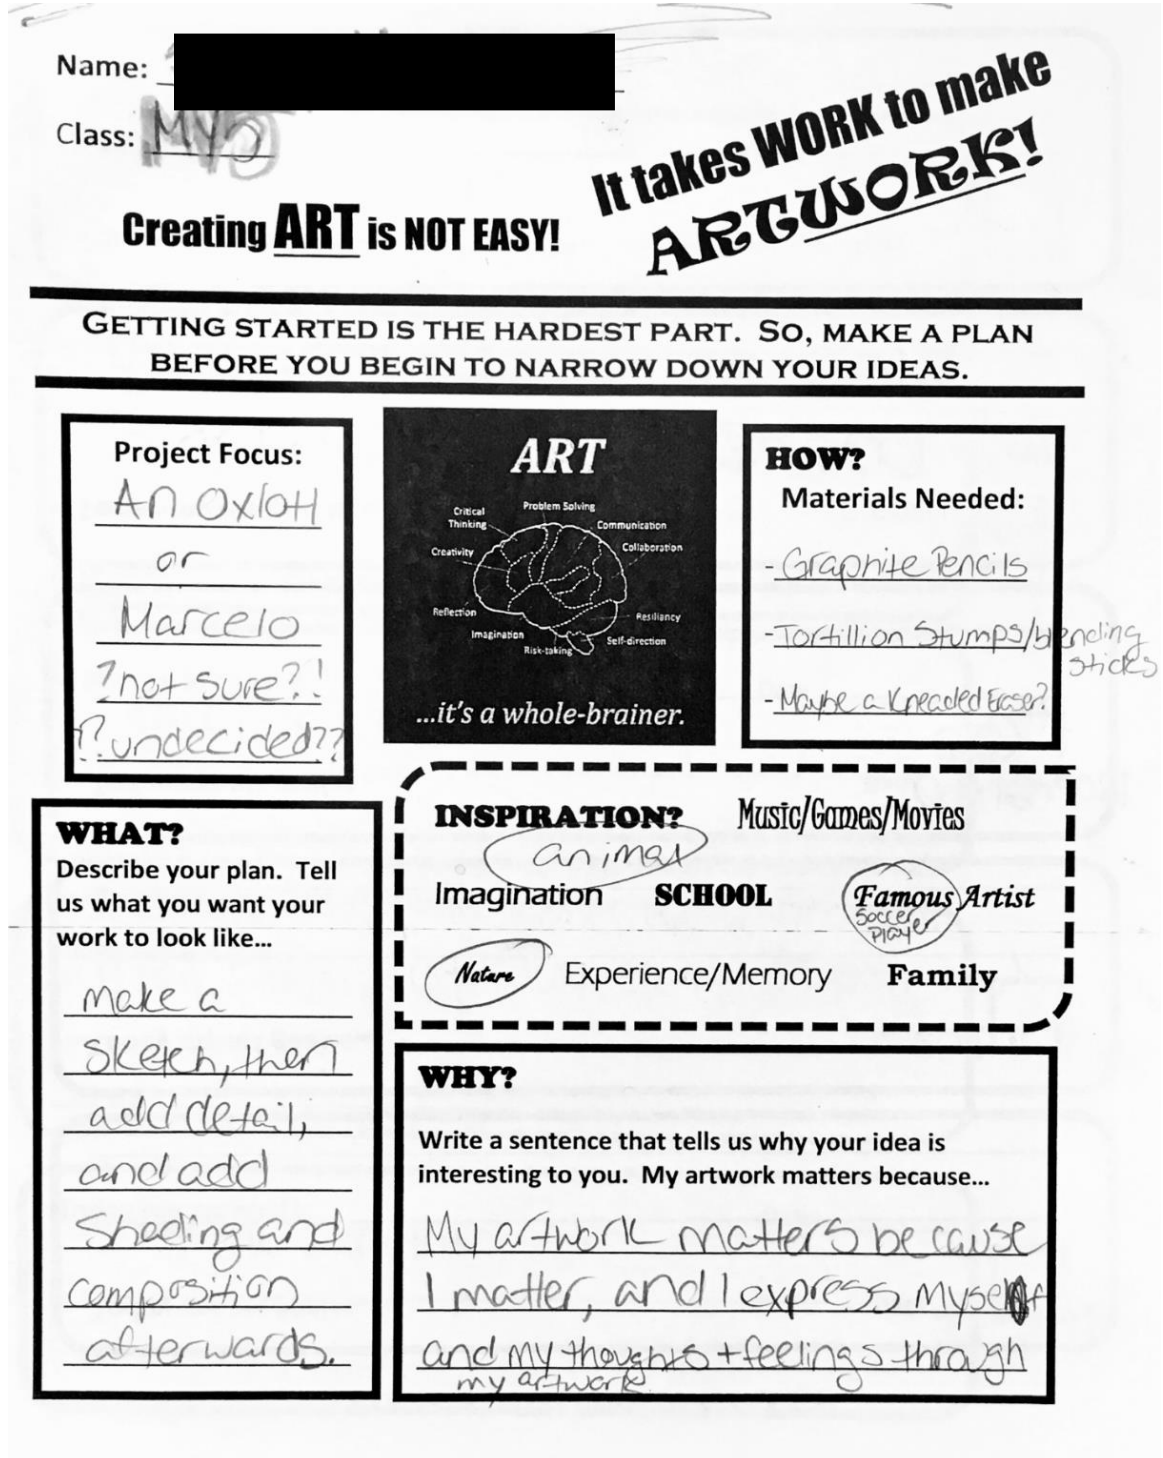 Name:
Class: My5
It takes WORK to make
ARTWORK!
Creating ART is NOT EASY!
GETTING STARTED IS THE HARDEST PART. SO, MAKE A PLAN
BEFORE YOU BEGIN TO NARROW DOWN YOUR IDEAS.
Project Focus:
An Oxlotl
or
Marcelo
?not sure?!
?undecided??
ART
Problem Solving
Critical
Thinking
Communication
Creativity
Collaboration
Reflection
Resiliancy
Imagination
Self-direction
Risk-taking
...it's a whole-brainer.
HOW?
Materials Needed:
- Graphite Pencils
- Tortillion Stumps/blending
sticks
- Maybe a Kneaded Eraser?
WHAT?
Describe your plan. Tell
us what you want your
work to look like...
make a
sketch, then
add detail,
and add
Shading and
composition
afterwards.
INSPIRATION?
Music/Games/Movies
animal
Imagination
SCHOOL
Famous Artist
Soccer
Player
Nature
Experience/Memory
Family
WHY?
Write a sentence that tells us why your idea is
interesting to you. My artwork matters because...
My artwork matters because
I matter, and I express myself
and my thoughts + feelings through
my artwork.